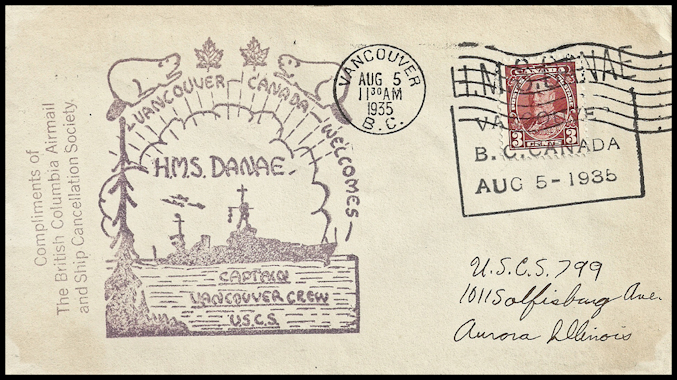 Compliments of
The British Columbia Airmail
and Ship Cancellation Society.
VANCOUVER CANADA WELCOMES
H.M.S. DANAE
CAPTAIN
VANCOUVER CREW
U.S.C.S.
VANCOUVER
AUG 5
11 30 AM
1935
B.C.
H.M.S. DANAE
B.C. CANADA
AUG 5 - 1935
3 3
U.S.C.S. 799
1011 Solfisburg Ave.
Aurora Illinois